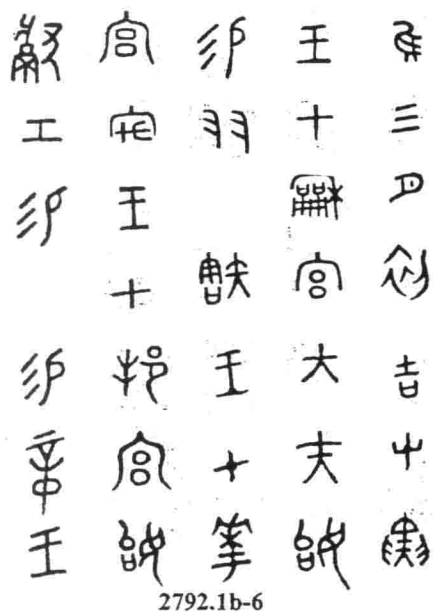 隹三月初吉甲寅
王才龢宮大夫始
易友王才華
宮王才邦宮始
獻工易易章王
2792.1b-6